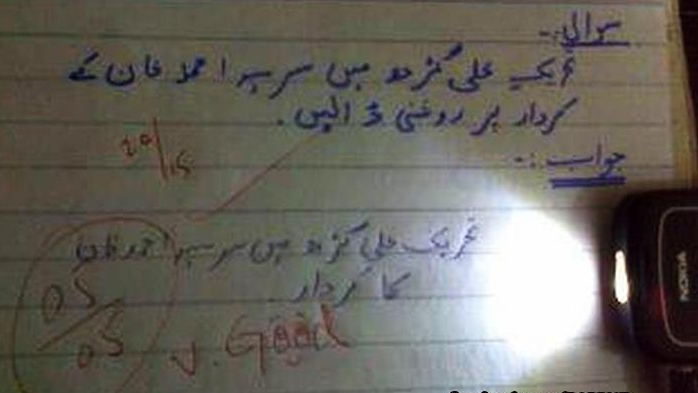 سوال :-
تحریک علی گڑھ میں سر سید احمد خان کے
کردار پر روشنی ڈالیں۔
جواب :-
20/15
تحریک علی گڑھ میں سر سید احمد خان
کا کردار
05/05
v. Good
NOKIA